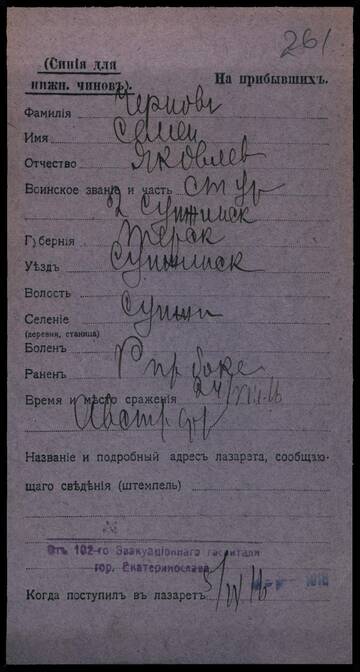 261
(Синія для
нижн. чиновъ).
На прибывшихъ.
Фамилія Черновъ
Имя Семен
Отчество Яковлев
Воинское званіе и часть ст ур
2 Сунженск
Губернія Терск
Уѣздъ Сунженск
Волость
Селеніе Сунж
(деревня, станица)
Боленъ
Раненъ Р пр боке
Время и мѣсто сраженія 24/VIII-16
Австр
Названіе и подробный адресъ лазарета, сообщаю-
щаго свѣдѣнія (штемпель)
Отъ 102-го Эвакуаціоннаго госпиталя
гор. Екатеринослава
Когда поступилъ въ лазаретъ 5/IX 16 1916